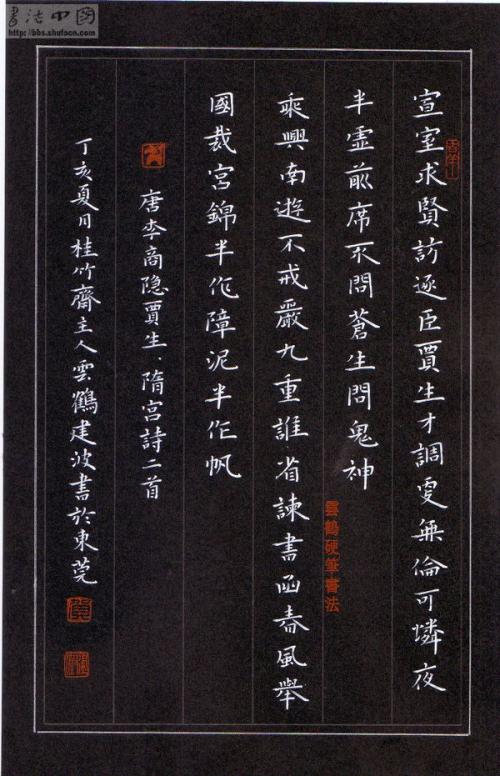 書法中國
http://bbs.shufacn.com
宣室求賢訪逐臣賈生才調更無倫可憐夜
半虛前席不問蒼生問鬼神
雲鶴硬筆書法
乘興南遊不戒嚴九重誰省諫書函春風舉
國裁宮錦半作障泥半作帆
唐李商隐賈生、隋宮詩二首
丁亥夏月桂竹齋主人雲鶴建波書於東莞